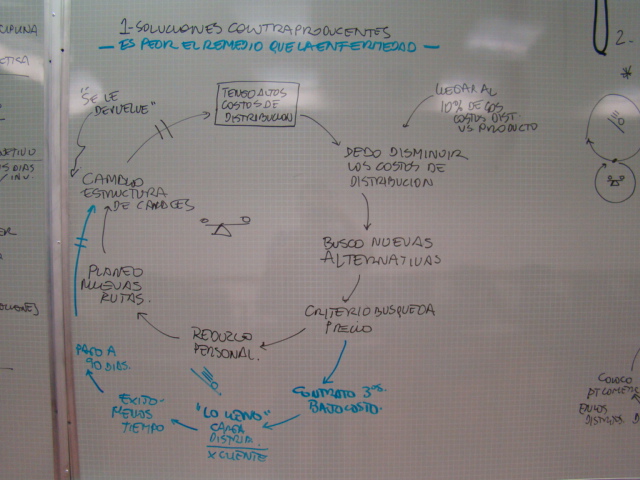 1-SOLUCIONES CONTRAPRODUCENTES
— ES PEOR EL REMEDIO QUE LA ENFERMEDAD —
"SE LE
DEVUELVE"
TENGO ALTOS
COSTOS DE
DISTRIBUCION
LLEGAR AL
10% DE LOS
COSTOS DIST.
VS PRODUCTO
DEBO DISMINUIR
LOS COSTOS DE
DISTRIBUCION
CAMBIO
ESTRUCTURA
DE CANALES
BUSCO NUEVAS
ALTERNATIVAS
PLANEO
NUEVAS
RUTAS.
CRITERIO BUSQUEDA
PRECIO
REDUZCO
PERSONAL.
CONTRATO 3ros.
BAJO COSTO.
"LO LLENO"
CARGA
DISTRIB.
X CLIENTE
EXITO-
MENOS
TIEMPO
PAGO A
90 DIAS.
2.
*
COLOCO